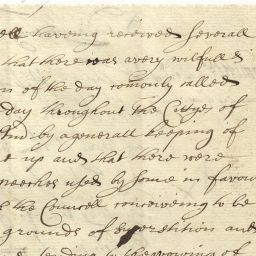 ell haveing received severall
that there was a very wilfull
n of the day comonly called
day throughout the Cottye of
and by a generall keeping of
t up and that there were
speeches used by some in favou
the Councell conceiveing to be
grounds of Superstition and
tending to the avowing of